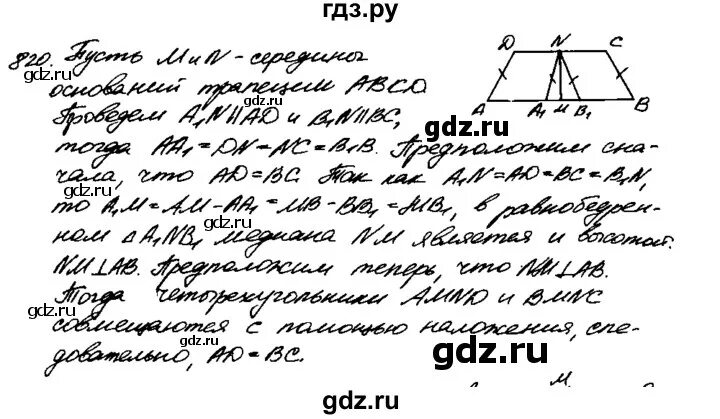 гдз.ру
820. Пусть M и N - середины
оснований трапеции ABCD.
Проведем A₁N||AD и B₁N||BC,
тогда AA₁=DN=NC=B₁B. Предположим сна-
чала, что AD=BC. Так как A₁N=AD=BC=B₁N,
то A₁M=AM-AA₁=MB-BB₁=MB₁, в равнобедрен-
ном △A₁NB₁ медиана NM является и высотой.
NM⊥AB. Предположим теперь, что NM⊥AB.
Тогда четырехугольники AMND и BMNC
совмещаются с помощью наложения, сле-
довательно, AD=BC.
D N C
A A₁ M B₁ B
гдз.ру
гдз.ру
гдз.ру
гдз.ру
гдз.ру
гдз.ру
гдз.ру
M
гдз.ру